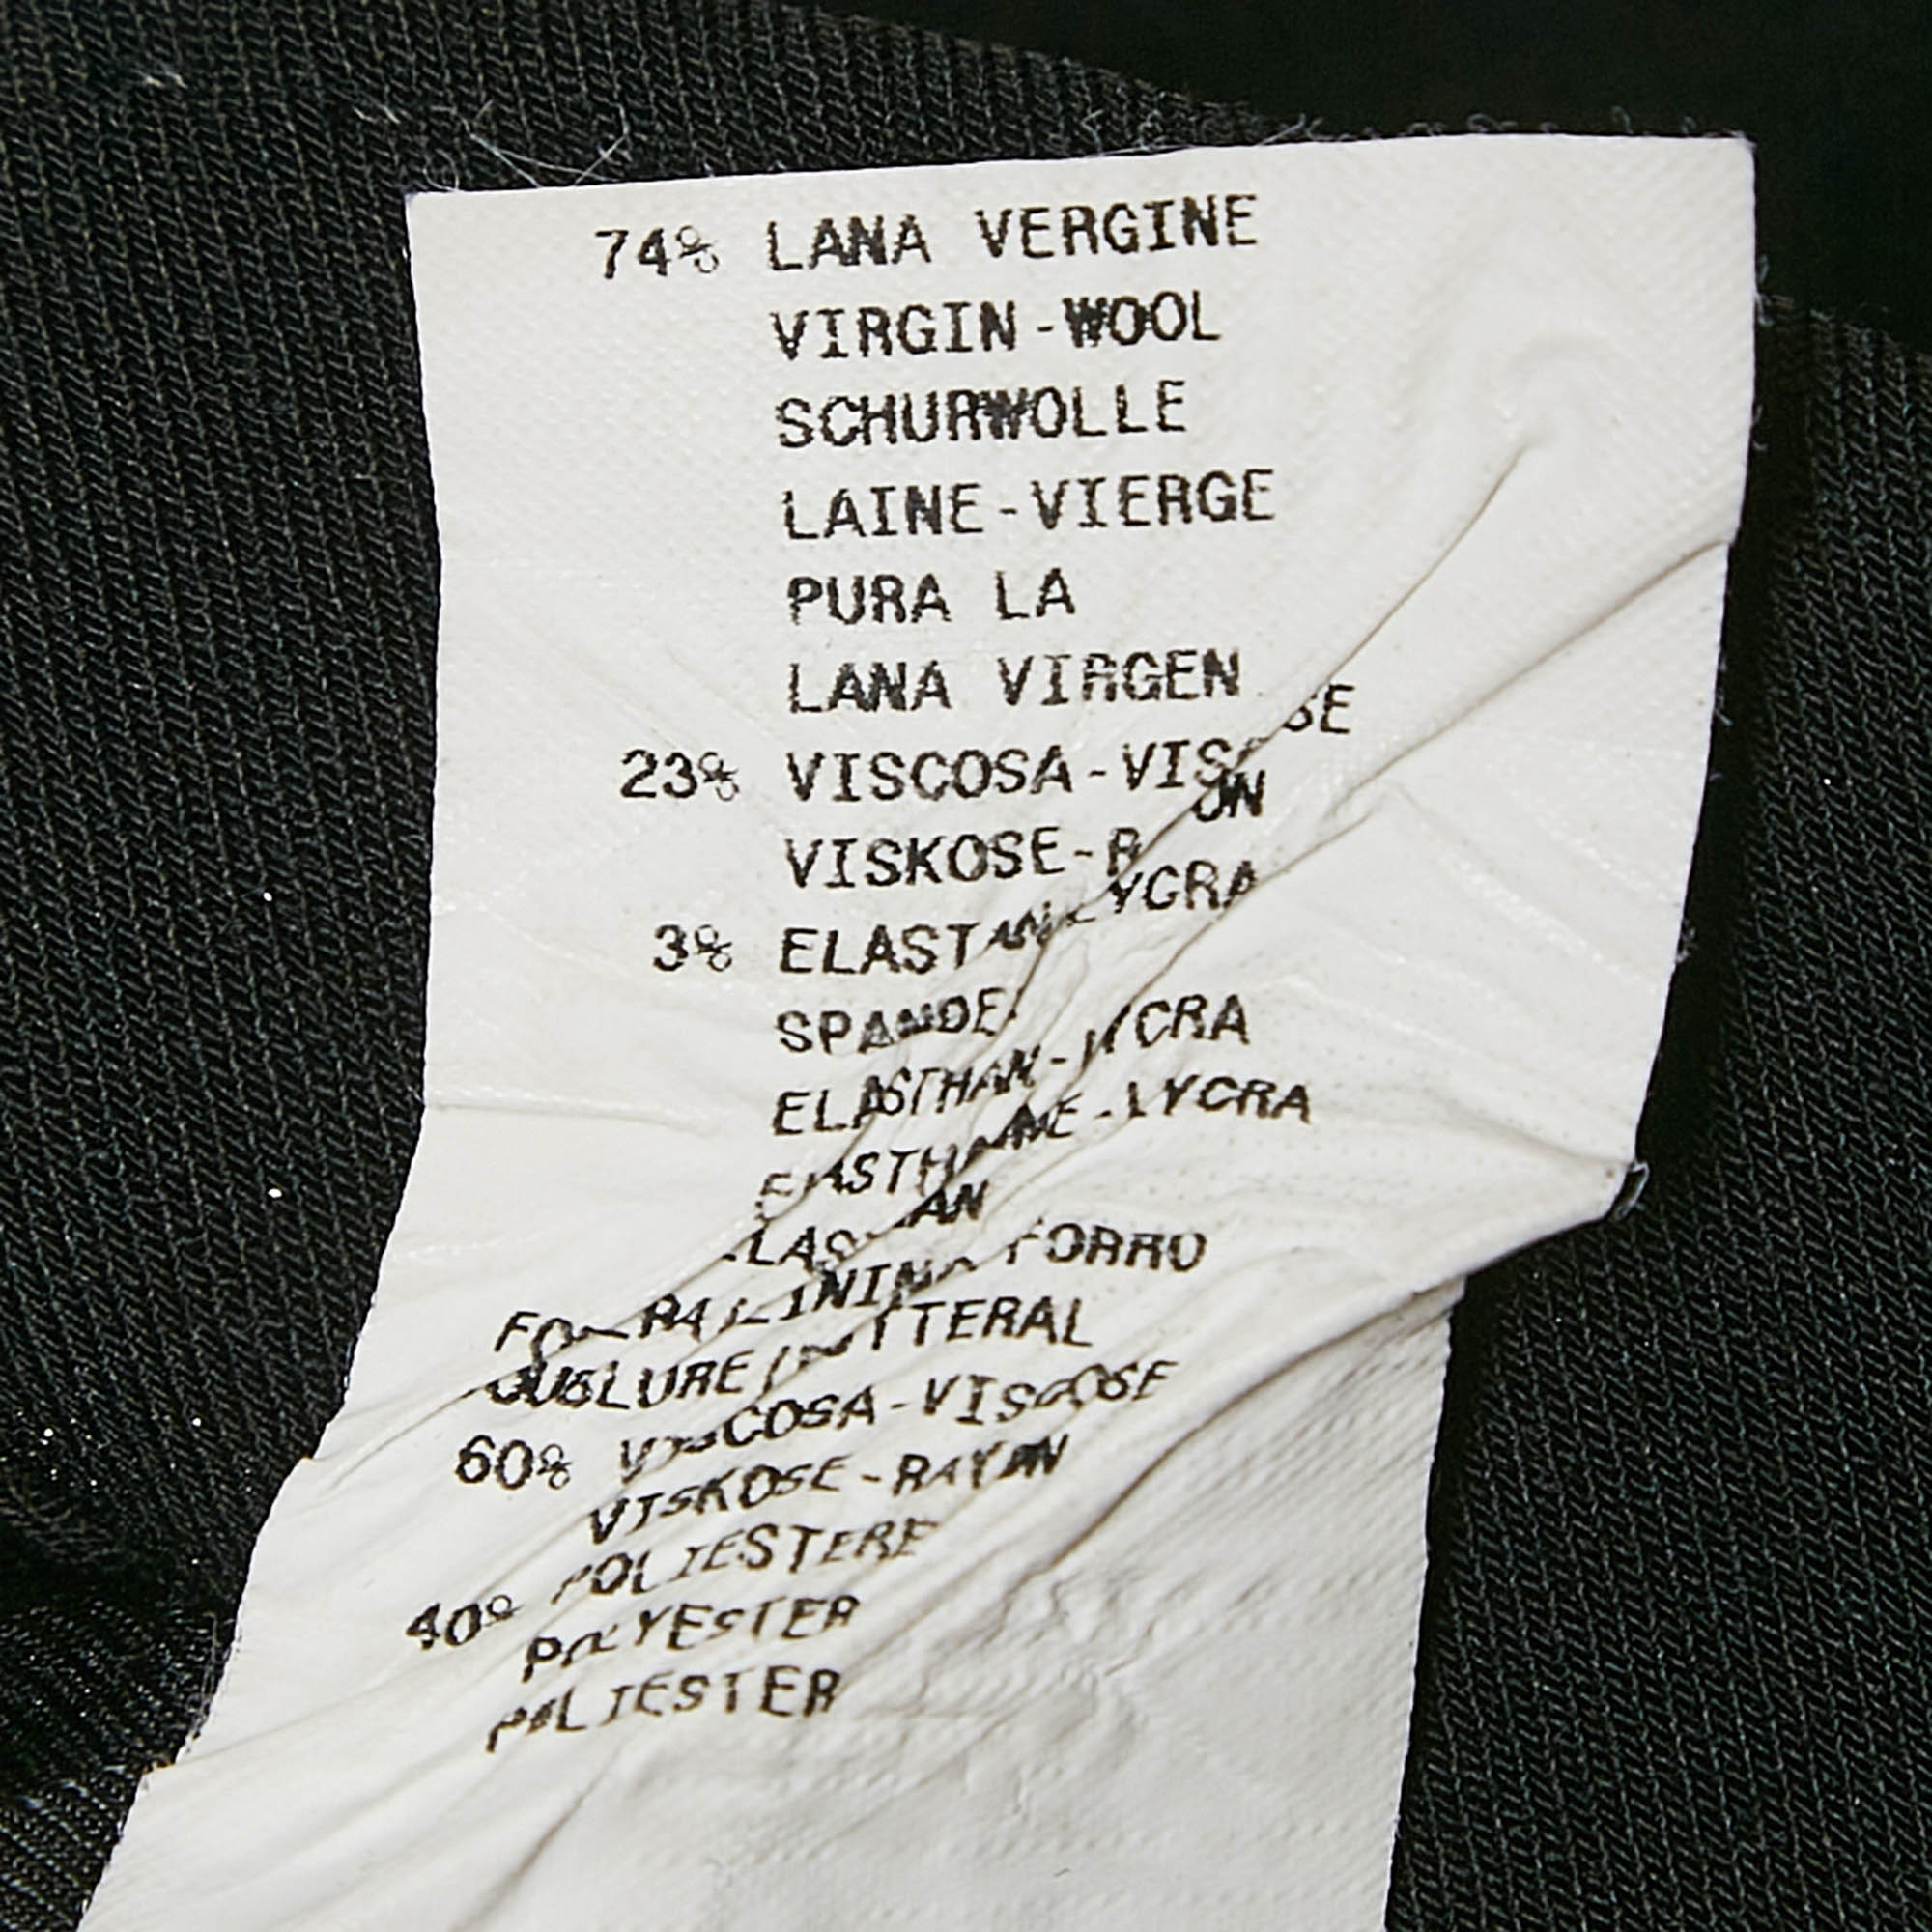 74% LANA VERGINE
VIRGIN-WOOL
SCHURWOLLE
LAINE-VIERGE
PURA LA
LANA VIRGEN
23% VISCOSA-VISCOSE
VISKOSE-R ON
3% ELASTAN-LYCRA
SPANDE
ELASTHAN-LYCRA
ELASTHANNE-LYCRA
ELASTAN
LINING FORRO
60% VISCOSA-VISCOSE
VISKOSE-RAYON
40% POLIESTERE
POLYESTER
POLIESTER